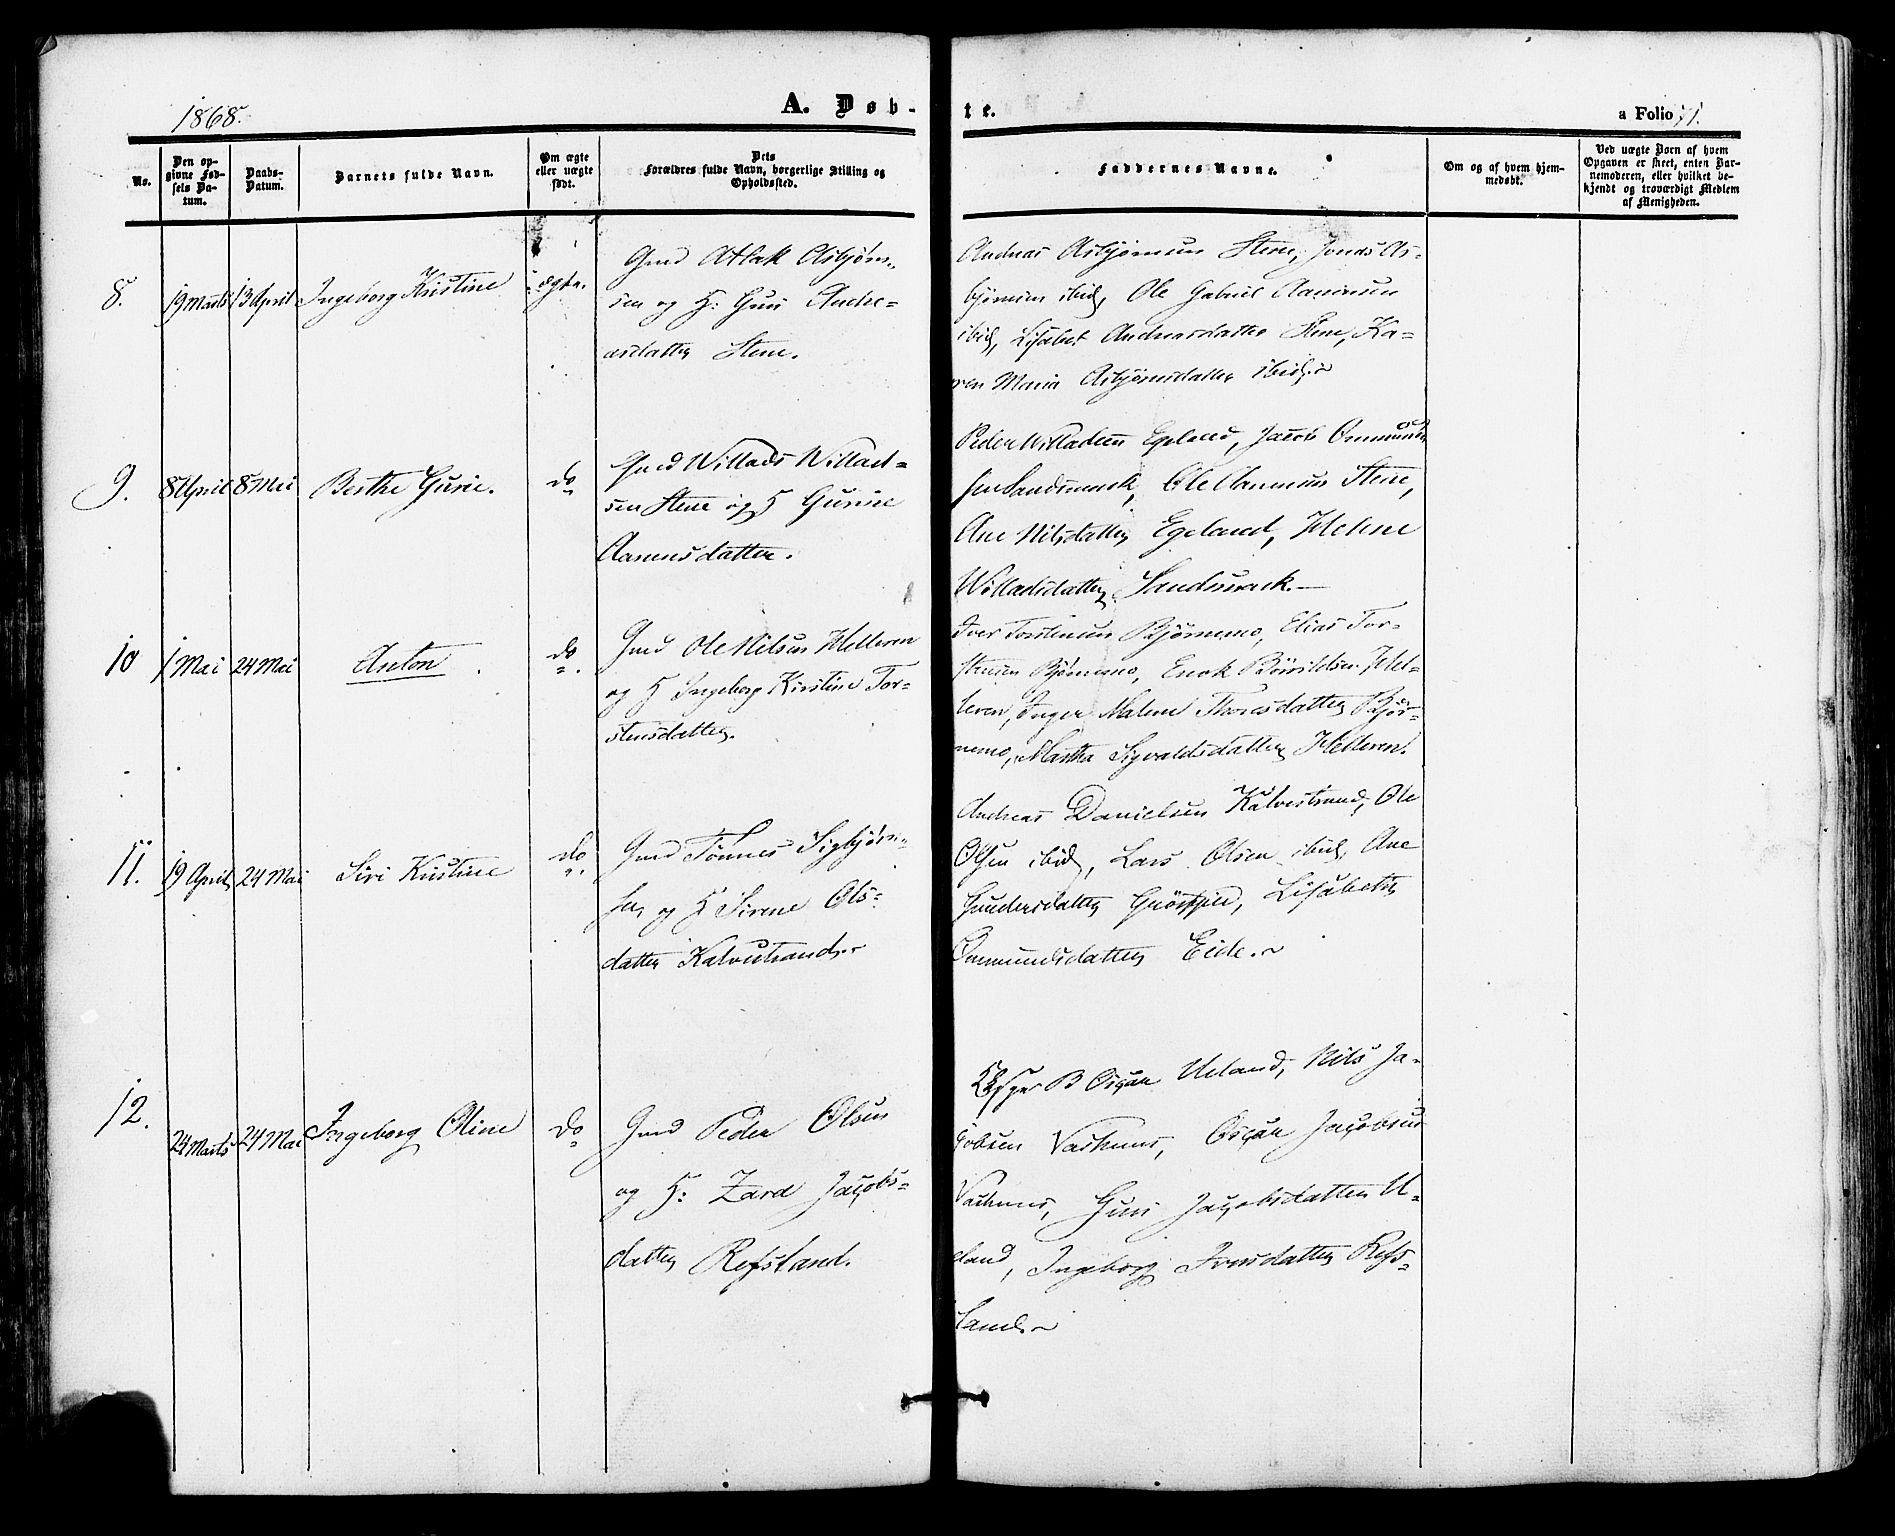 1868.
A. Døb-
te.
a Folio 71.
No.
Den op-
givne Fød-
sels Da-
tum.
Daabs-
Datum.
Barnets fulde Navn.
Om ægte
eller uægte
født.
Dets
Forældres fulde Navn, borgerlige Stilling og
Opholdssted.
Faddernes Navne.
Om og af hvem hjem-
medøbt.
Ved uægte Born af hvem
Opgaven er skeet, enten Bar-
nemoderen, eller hvilket be-
kjendt og troværdigt Medlem
af Menigheden.
8.
19 Marts
13 April
Ingeborg Kristine
ægte.
Gmd Atlak Asbjørn-
sen og H: Guri Andre-
asdatter Stene.
Andreas Asbjørnsen Stene, Jonas As-
bjørnsen ibid, Ole Gabriel Aanensen
ibid, Lisabet Andreasdatter Stene, Ka-
ren Maria Asbjørnsdatter ibid.
9.
8 April
8 Mai
Berthe Gurie.
do
Gmd Willads Willad-
sen Stene og H Gurine
Aanensdatter.
Peder Willadsen Egeland, Jacob Ommund-
sen Sandsmark, Ole Aanensen Stene,
Ane Nilsdatter Egeland, Helene
Willadsdatter Sandsmark.
10
1 Mai
24 Mai
Anton
do
Gmd Ole Nilsen Helleren
og H Ingeborg Kirstine Tor-
stensdatter.
Iver Torstensen Bjørnemo, Elias Tor-
stensen Bjørnemo, Enok Helle-
leren, Inger Malene Thoresdatter Bjør-
nemo, Martha Sigvaldsdatter Helleren.
11.
19 April
24 Mai
Siri Kristine
do
Gmd Tønnes Sigbjørn-
sen og H Sirene Ols-
datter Kalvestrand.
Andreas Danielsen Kalvestrand, Ole
Olsen ibid, Lars Olsen ibid, Ane
Gundersdatter Lisabeth
Ommundsdatter Eide.
12.
24 Marts
24 Mai
Ingeborg Oline
do
Gmd Peder Olsen
og H: Zard Jacobs-
datter Refsland.
B Osçar Ueland, Nils Ja-
çobsen Osçar Jaçobsen
Guri Jaçobsdatter U-
eland, Ingeborg Iversdatter Refs-
land.